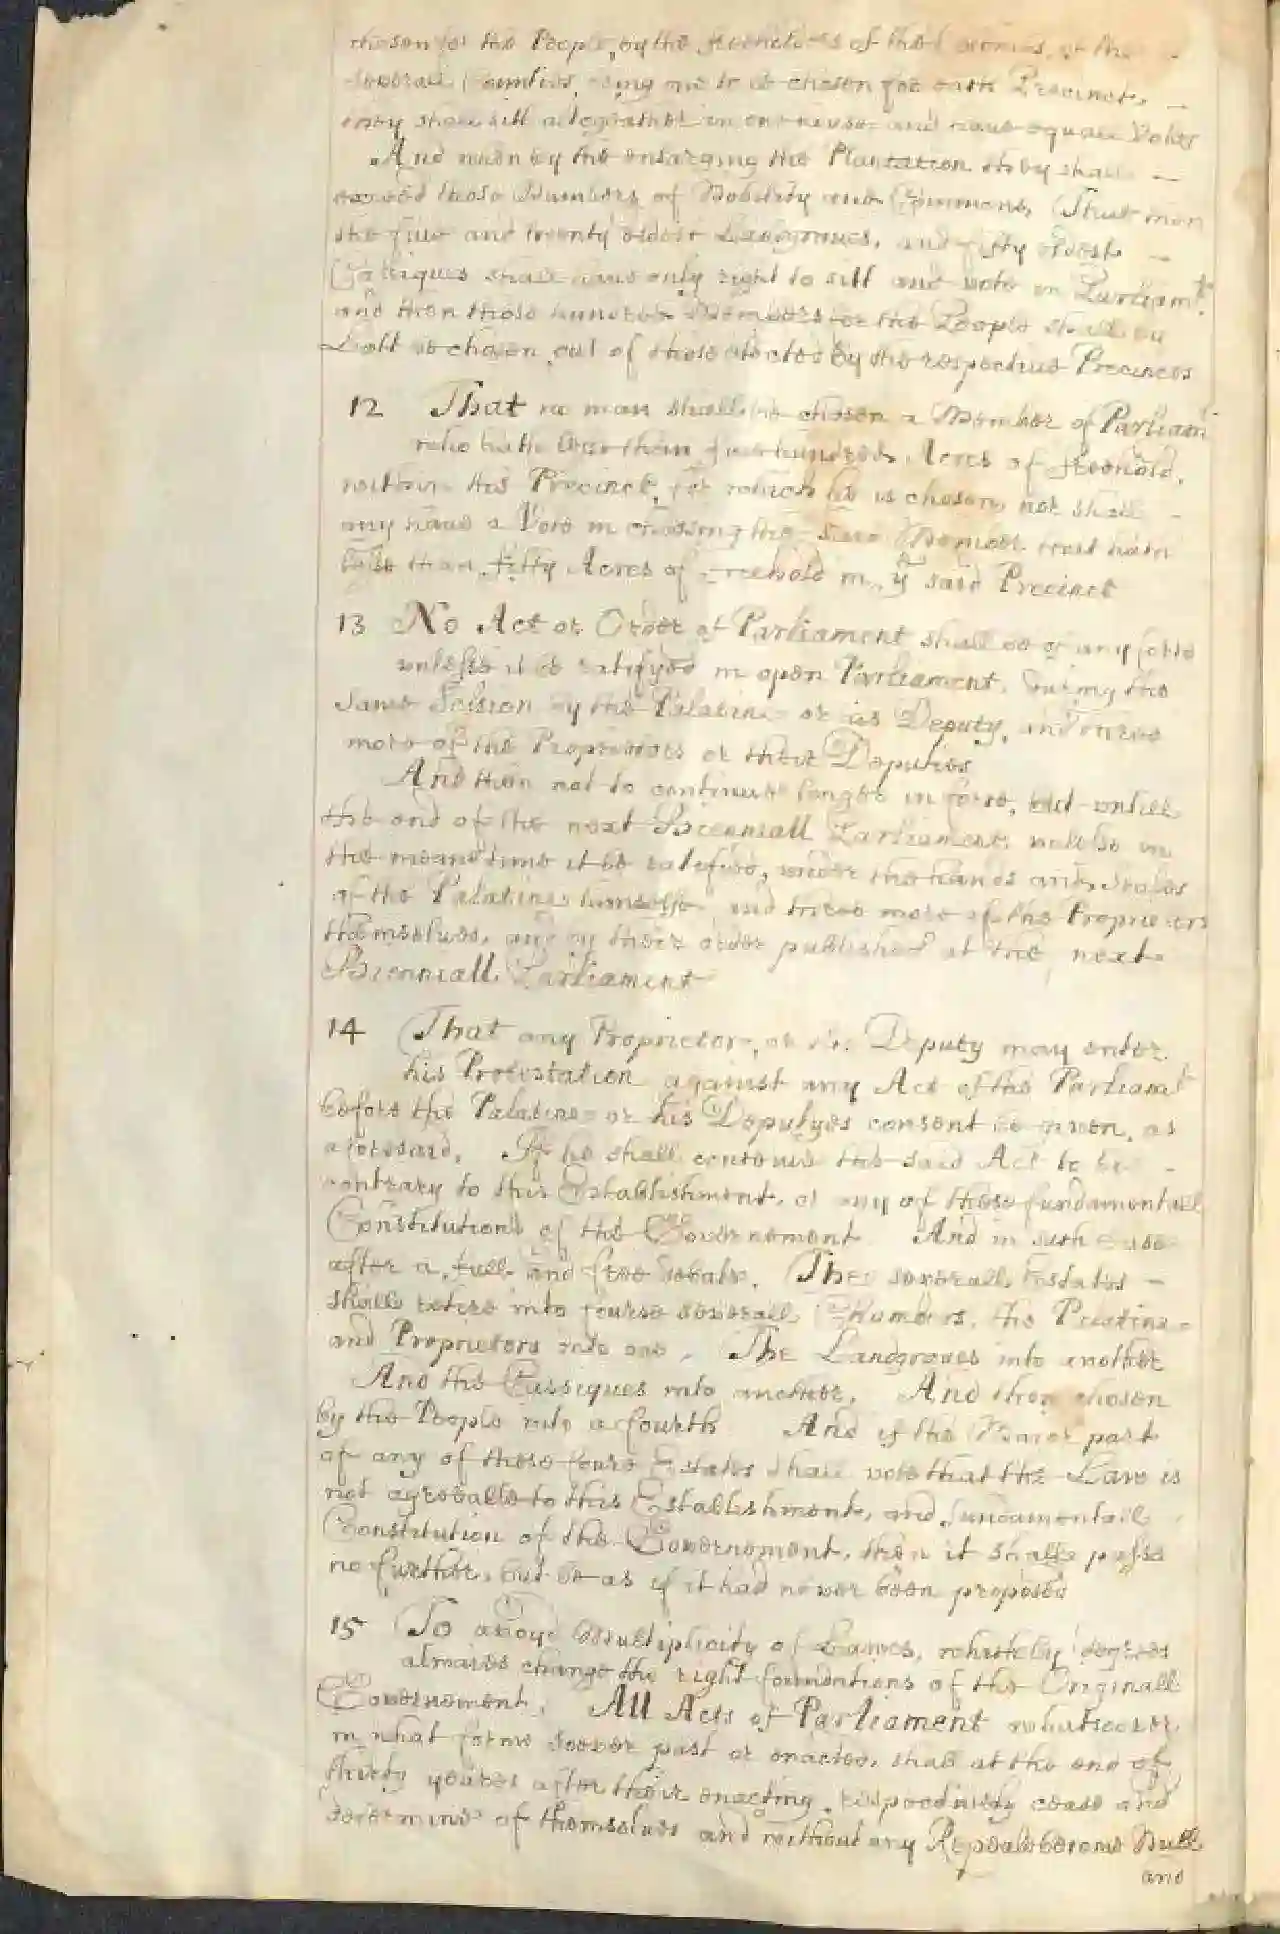 chosen for the People, by the freeholders of the Counties, of the
severall Counties, being one to be chosen for each Precinct,
they shall sitt altogeather in one house and have equall Votes
And when by the enlarging the Plantation they shall
exceed those Numbers of Nobility and Commons, Then
the five and twenty oldest Landgraves, and fifty oldest
Cassiques shall have only right to sitt and vote in Parliamt.
and then those hundred Members for the People shall by
Ballt be chosen out of those elected by the respective Precincts
12 That no man shall be chosen a Member of Parliamt
who hath lesse then five hundred Acres of freehold,
within the Precinct, for which he is chosen, nor shall
any have a Vote in choosing the said Member that hath
lesse than fifty Acres of Freehold in ye said Precinct
13 No Act or Order of Parliament shall be of any force
unlesse it be ratifyed in open Parliament, during the
same Session by the Palatine or is Deputy, and three
more of the Proprietors or their Deputies
And then not to continue longer in force, but untill
the end of the next Bienniall Parliament, unlesse in
the meane time it be ratefied, under the hands and Seales
of the Palatine himselfe and three more of the Proprietors
themselves, and by their order published at the next
Bienniall Parliament
14 That any Proprietor, or his Deputy may enter
his Protestation against any Act of the Parliamt
before the Palatine or his Deputyes consent be given, as
aforesaid. If he shall conceive the said Act to be
contrary to this Establishment, or any of these fundamentall
Constitutions of the Governement And in such case
after a full and free debate, The severall Estates
shall retire into foure severall Chambers, the Palatine
and Proprietors into one, The Landgraves into another
And the Cassiques into another, And then chosen
by the People into a fourth And if the Major part
of any of these foure Estates shall vote that the Law is
not agreeable to this Establishment, and fundamentall
Constitution of the Governement, then it shall passe
no further, but be as if it had never been proposed
15 To avoyd Multiplicity of Lawes, which by degrees
alwaies change the right foundations of the Originall
Governement. All Acts of Parliament whatsoever
in what forme soever past or enacted, shall at the end of
thirty yeares after their enacting respectively cease and
determine of themselves and without any Repeale become Null
and